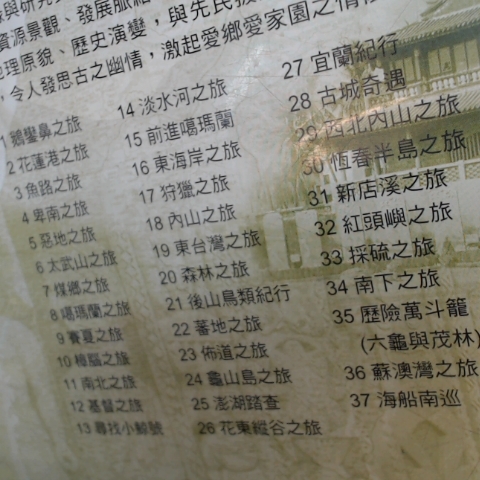 與研究
資源景觀、發展脈絡
地理原貌、歷史演變，與先民
，令人發思古之幽情，激起愛鄉愛家園之情
1 鵝鑾鼻之旅
2 花蓮港之旅
3 魚路之旅
4 卑南之旅
5 惡地之旅
6 太武山之旅
7 煤鄉之旅
8 噶瑪蘭之旅
9 賽夏之旅
10 樟腦之旅
11 南北之旅
12 基督之旅
13 尋找小鯨號
14 淡水河之旅
15 前進噶瑪蘭
16 東海岸之旅
17 狩獵之旅
18 內山之旅
19 東台灣之旅
20 森林之旅
21 後山鳥類紀行
22 蕃地之旅
23 佈道之旅
24 龜山島之旅
25 澎湖踏查
26 花東縱谷之旅
27 宜蘭紀行
28 古城奇遇
29 西北內山之旅
30 恆春半島之旅
31 新店溪之旅
32 紅頭嶼之旅
33 採硫之旅
34 南下之旅
35 歷險萬斗籠
(六龜與茂林)
36 蘇澳灣之旅
37 海船南巡